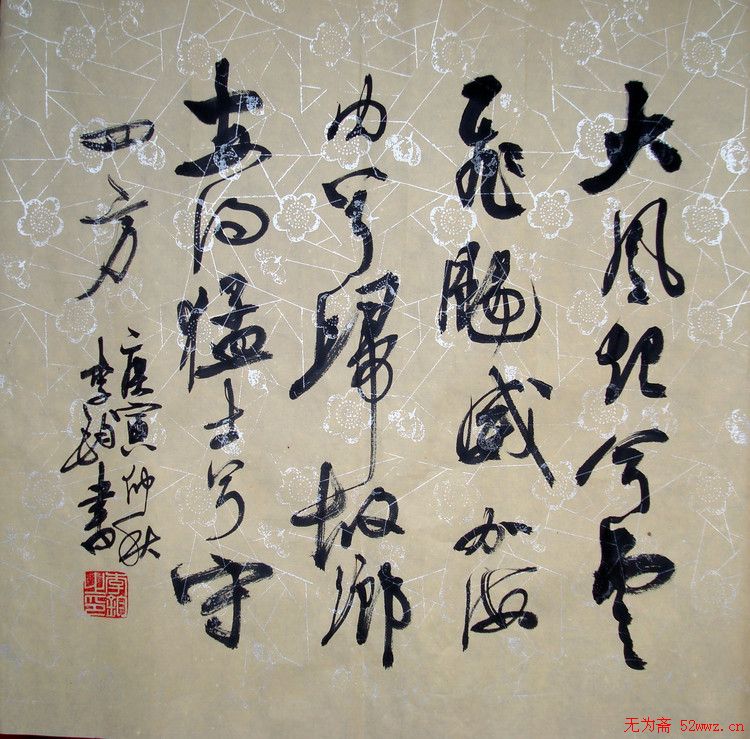 大風起兮雲
飛颺威加海
内兮歸故鄉
安得猛士兮守
四方
庚寅仲秋
李書
无为斋 52wwz.cn